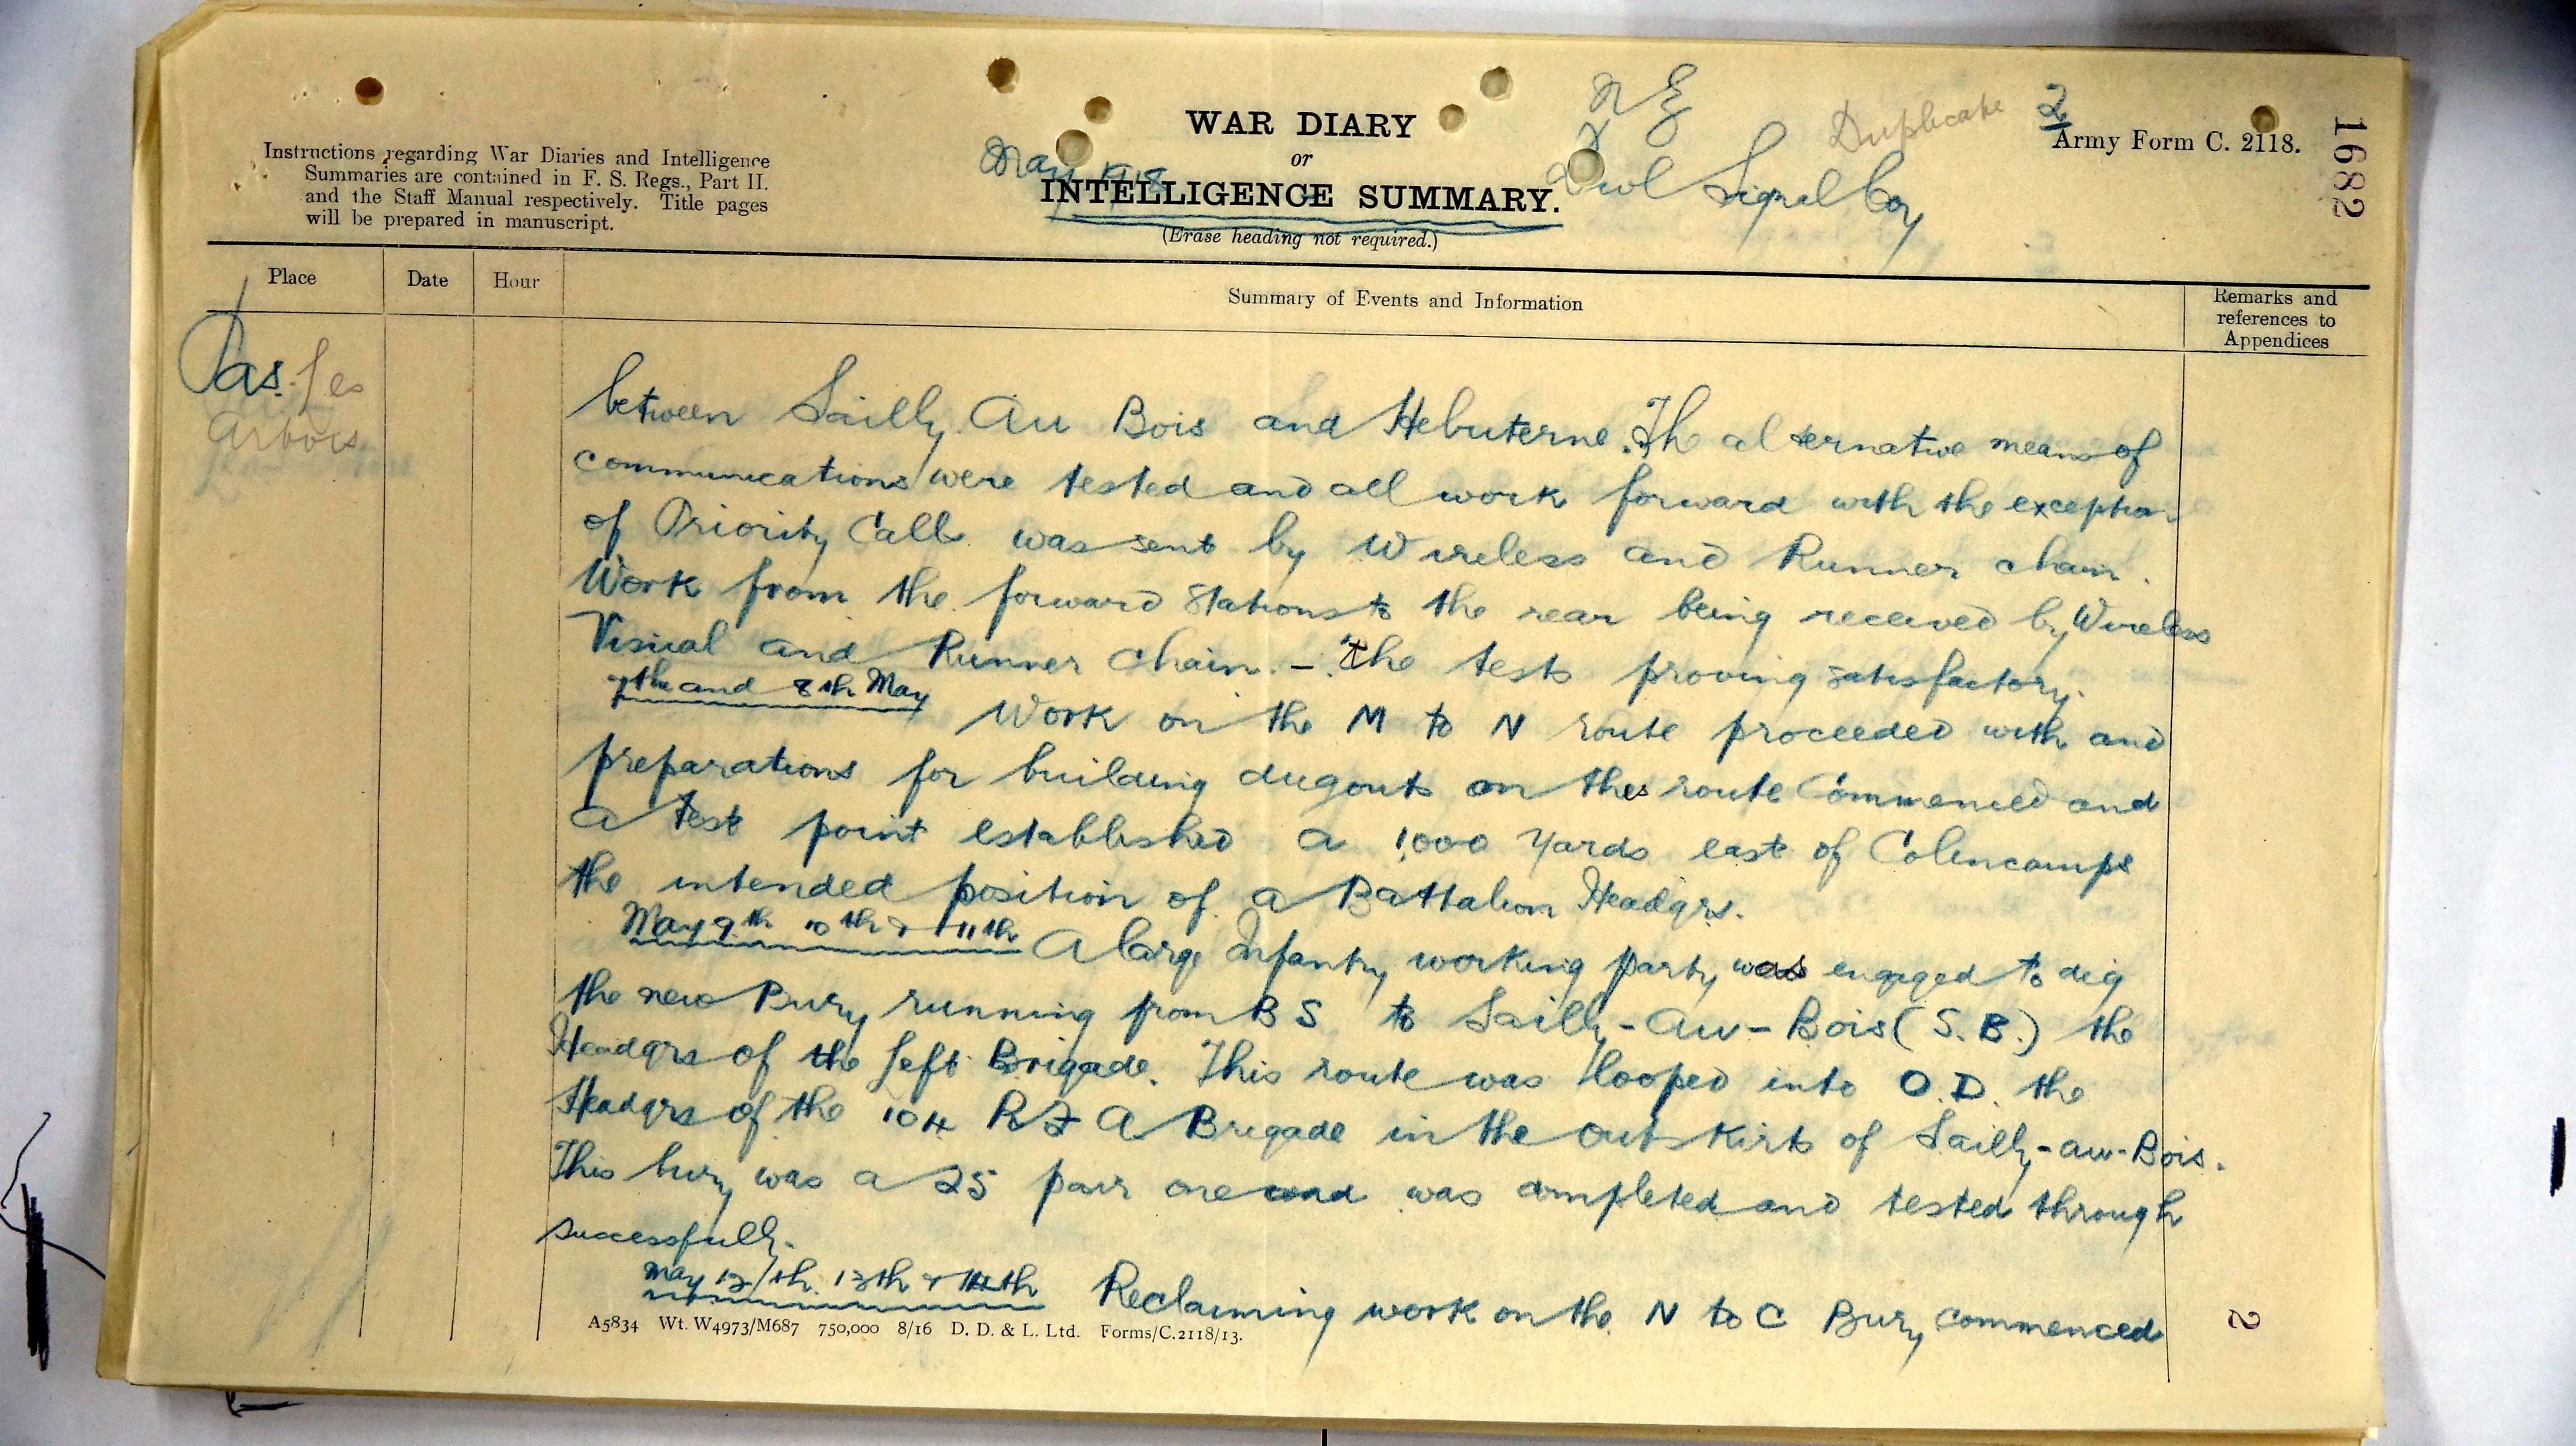 WAR DIARY
or
INTELLIGENCE SUMMARY.
(Erase heading not required.)
May 1918
N Z
Divl Signal Coy
Duplicate
2
Army Form C. 2118.
1682
Instructions regarding War Diaries and Intelligence
Summaries are contained in F. S. Regs., Part II.
and the Staff Manual respectively. Title pages
will be prepared in manuscript.
Place
Date
Hour
Summary of Events and Information
Remarks and
references to
Appendices
Pas. les
Artois
between Sailly Au Bois and Hebuterne. The alternative means of
communications were tested and all work forward with the exception
of Priority Calls was sent by Wireless and Runner chain.
Work from the forward Stations to the rear being received by Wireless
Visual and Runner chain. – The tests proving satisfactory.
7th and 8th May Work on the M to N route proceeded with and
preparations for building dugouts on the route Commenced and
a test point established a 1,000 yards east of Colincamps
the intended position of a Battalion Headqrs.
May 9th 10th & 11th A large Infantry working party was engaged to dig
the new Bury running from B S to Sailly-Au-Bois (S.B.) the
Headqrs of the left Brigade. This route was looped into O.D. the
Headqrs of the 104 R F A Brigade in the outskirts of Sailly-au-Bois.
This bury was a 25 pair one and was completed and tested through
successfully.
May 12/th 13th & 14th Reclaiming work on the N to C Bury commenced
A5834 Wt. W4973/M687 750,000 8/16 D. D. & L. Ltd. Forms/C.2118/13.
2